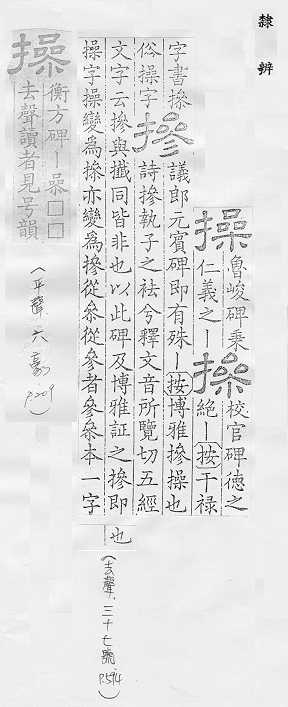 隸辨
操 魯峻碑秉
仁義之丨
操 校官碑德之
絕丨按干祿
字書摻
俗操字
摻 議郎元賓碑即有殊丨按博雅摻操也
詩摻執子之袪兮釋文音所覽切五經
文字云摻與攕同皆非也以此碑及博雅証之摻即
操字操變爲摻亦變爲摻從叅從參者參叅本一字
也
(去聲,三十七號 P.594)
操 衡方碑丨喿□□
去聲讀者見号韻
(平聲 六豪 P.209)